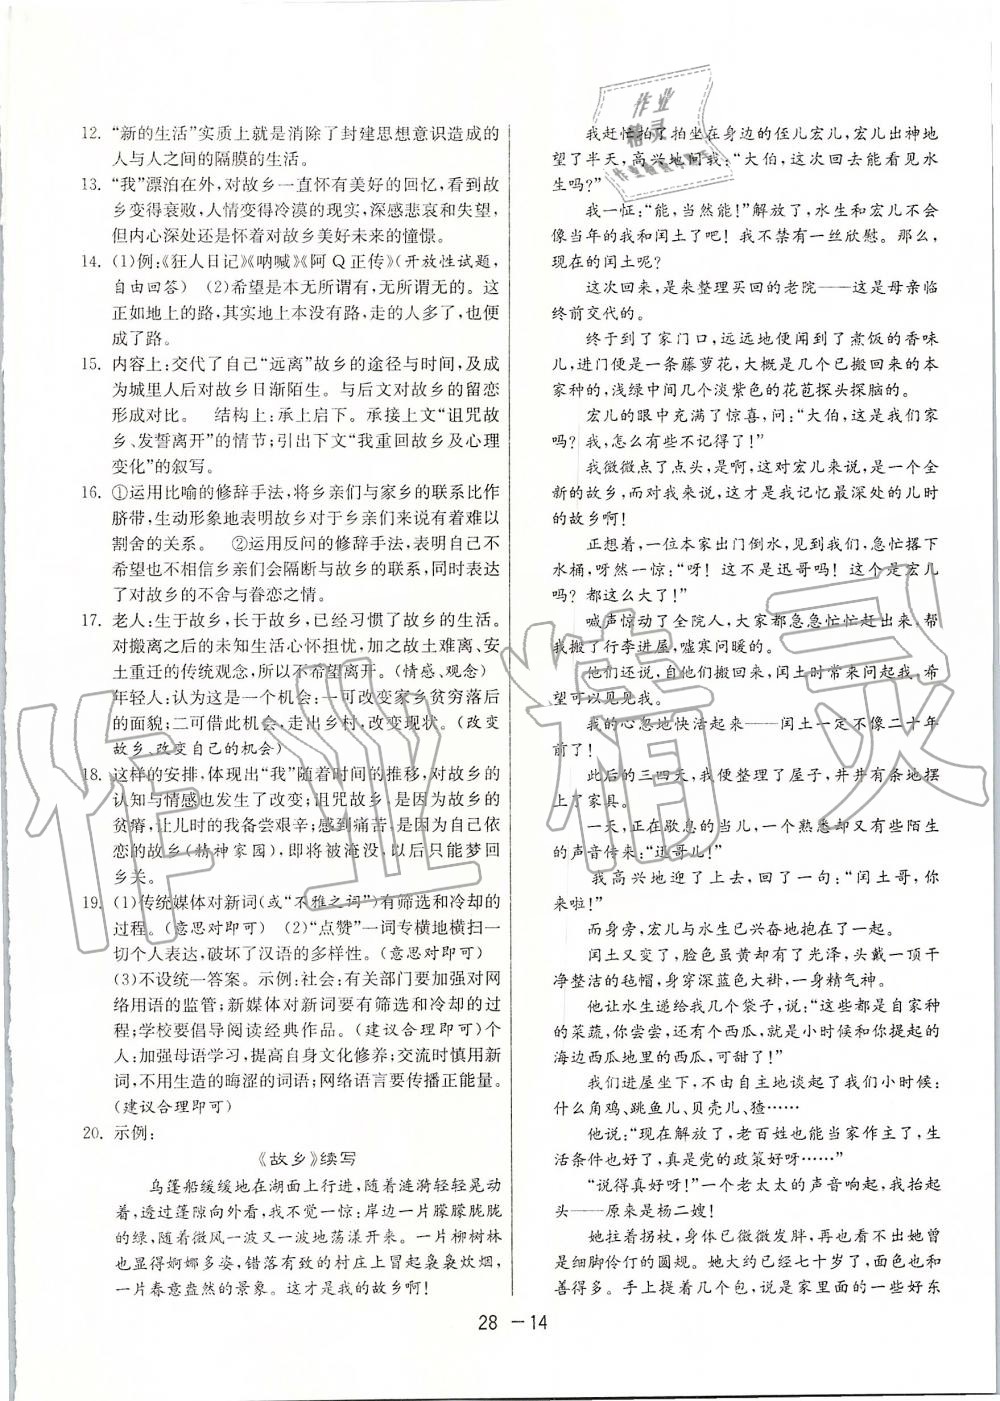 12. “新的生活”实质上就是消除了封建思想意识造成的
人与人之间的隔膜的生活。
13. “我”漂泊在外,对故乡一直怀有美好的回忆,看到故
乡变得衰败,人情变得冷漠的现实,深感悲哀和失望,
但内心深处还是怀着对故乡美好未来的憧憬。
14. (1)例:《狂人日记》《呐喊》《阿Q正传》(开放性试题,
自由回答) (2)希望是本无所谓有,无所谓无的。这
正如地上的路,其实地上本没有路,走的人多了,也便
成了路。
15. 内容上:交代了自己“远离”故乡的途径与时间,及成
为城里人后对故乡日渐陌生。与后文对故乡的留恋
形成对比。 结构上:承上启下。承接上文“诅咒故
乡、发誓离开”的情节;引出下文“我重回故乡及心理
变化”的叙写。
16. ①运用比喻的修辞手法,将乡亲们与家乡的联系比作
脐带,生动形象地表明故乡对于乡亲们来说有着难以
割舍的关系。 ②运用反问的修辞手法,表明自己不
希望也不相信乡亲们会隔断与故乡的联系,同时表达
了对故乡的不舍与眷恋之情。
17. 老人:生于故乡,长于故乡,已经习惯了故乡的生活。
对搬离之后的未知生活心怀担忧,加之故土难离、安
土重迁的传统观念,所以不希望离开。(情感、观念)
年轻人:认为这是一个机会:一可改变家乡贫穷落后
的面貌;二可借此机会,走出乡村,改变现状。(改变
故乡、改变自己的机会)
18. 这样的安排,体现出“我”随着时间的推移,对故乡的
认知与情感也发生了改变;诅咒故乡,是因为故乡的
贫瘠,让儿时的我备尝艰辛;感到痛苦,是因为自己依
恋的故乡(精神家园),即将被淹没,以后只能梦回
乡关。
19. (1)传统媒体对新词(或“不雅之词”)有筛选和冷却的
过程。(意思对即可) (2)“点赞”一词专横地横扫一
切个人表达,破坏了汉语的多样性。(意思对即可)
(3)不设统一答案。示例:社会:有关部门要加强对网
络用语的监管;新媒体对新词要有筛选和冷却的过
程;学校要倡导阅读经典作品。(建议合理即可)个
人:加强母语学习,提高自身文化修养;交流时慎用新
词,不用生造的晦涩的词语;网络语言要传播正能量。
(建议合理即可)
20. 示例:
《故乡》续写
乌篷船缓缓地在湖面上行进,随着涟漪轻轻晃动
着,透过篷隙向外看,我不觉一惊:岸边一片朦朦胧胧
的绿,随着微风一波又一波地荡漾开来。一片柳树林
也显得婀娜多姿,错落有致的村庄上冒起袅袅炊烟,
一片春意盎然的景象。这才是我的故乡啊!
我赶忙拍了拍坐在身边的侄儿宏儿,宏儿出神地
望了半天,高兴地问我:“大伯,这次回去能看见水
生吗?”
我一怔:“能,当然能!”解放了,水生和宏儿不会
像当年的我和闰土了吧!我不禁有一丝欣慰。那么,
现在的闰土呢?
这次回来,是来整理买回的老院——这是母亲临
终前交代的。
终于到了家门口,远远地便闻到了煮饭的香味
儿,进门便是一条藤萝花,大概是几个已搬回来的本
家种的,浅绿中间几个淡紫色的花苞探头探脑的。
宏儿的眼中充满了惊喜,问:“大伯,这是我们家
吗?我,怎么有些不记得了!”
我微微点了点头,是啊,这对宏儿来说,是一个全
新的故乡,而对我来说,这才是我记忆最深处的儿时
的故乡啊!
正想着,一位本家出门倒水,见到我们,急忙撂下
水桶,呀然一惊:“呀!这不是迅哥吗!这个是宏儿
吗?都这么大了!”
喊声惊动了全院人,大家都急急忙忙赶出来,帮
我搬了行李进屋,嘘寒问暖的。
他们还说,自他们搬回来,闰土时常来问起我,希
望可以见见我。
我的心忽地快活起来——闰土一定不像二十年
前了!
此后的三四天,我便整理了屋子,井井有条地摆
上了家具。
一天,正在歇息的当儿,一个熟悉却又有些陌生
的声音传来:“迅哥儿!”
我高兴地迎了上去,回了一句:“闰土哥,你
来啦!”
而身旁,宏儿与水生已兴奋地抱在了一起。
闰土又变了,脸色虽黄却有了光泽,头戴一顶干
净整洁的毡帽,身穿深蓝色大褂,一身精气神。
他让水生递给我几个袋子,说:“这些都是自家种
的菜蔬,你尝尝,还有这个西瓜,就是小时候和你提起的
海边西瓜地里的西瓜,可甜了!”
我们进屋坐下,不由自主地谈起了我们小时候:
什么角鸡、跳鱼儿、贝壳儿、猹……
他说:“现在解放了,老百姓也能当家作主了,生
活条件也好了,真是党的政策好呀……”
“说得真好呀!”一个老太太的声音响起,我抬起
头——原来是杨二嫂!
她拄着拐杖,身体已微微发福,再也看不出她曾
是细脚伶仃的圆规。她大约已经七十岁了,面色也和
善得多。手上提着几个包,说是家里面的一些好东
28－14
作业
精灵
作业精灵